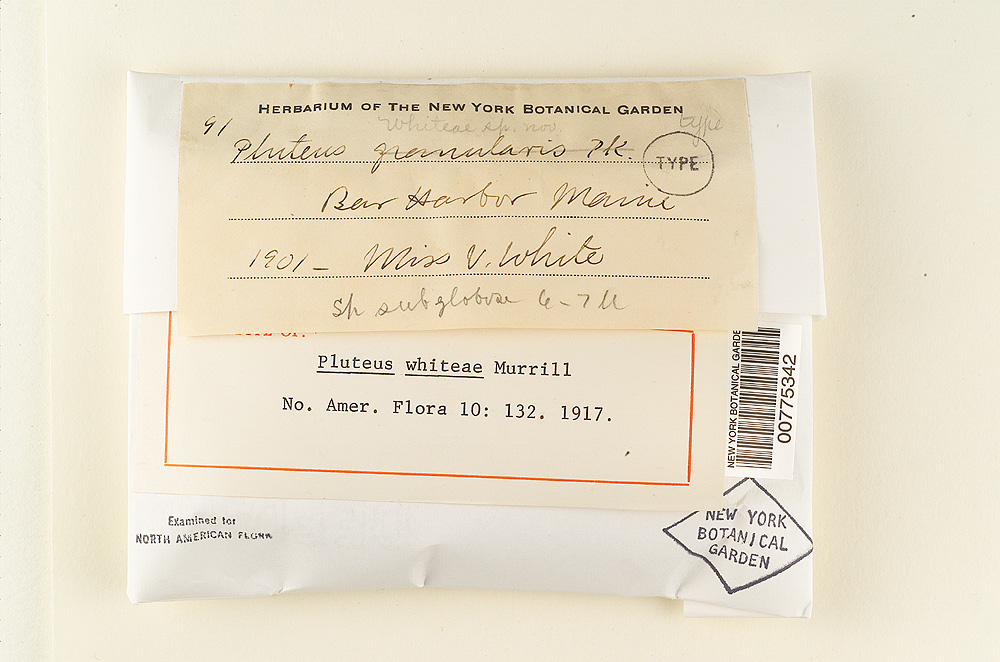 HERBARIUM OF THE NEW YORK BOTANICAL GARDEN
Whiteae sp. nov. type
91
Pluteus granularis Pk. TYPE
Bar Harbor Maine
1901 – Miss V. White
Sp subglobose 6-7 µ
Pluteus whiteae Murrill
No. Amer. Flora 10: 132. 1917.
NEW YORK BOTANICAL GARDE
00775342
Examined for
NORTH AMERICAN FLORA
NEW YORK
BOTANICAL
GARDEN